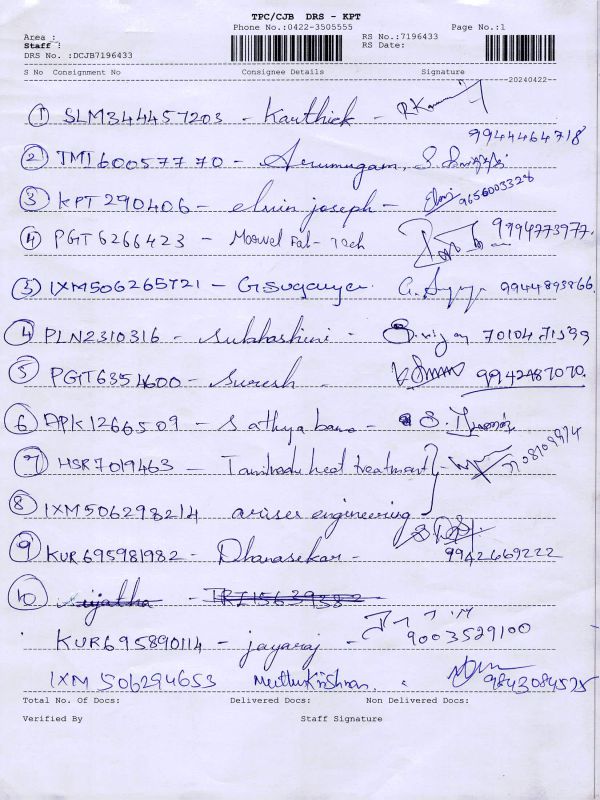 TPC/CJB DRS - KPT
Phone No.:0422-3505555 Page No.:1
Area :
Staff : RS No.:7196433
DRS No. :DCJB7196433 RS Date:
S No Consignment No Consignee Details Signature
20240422
1 SLM344457203 - Karthick - R
9944464718
2 TMI600577770 - Arumugam, S.
3 KPT290406 - elvin joseph - 9656003328
4 PGT6266423 - Marvel Fab-Tech 9994773977
5 IXM506265721 - G Suganya. 9944893866.
4 PLN2310316 - Subhashini - S. vijay
5 PGT6354600 - Suresh - 9942487070.
6 APK1266509 - Sathya bama - S.
7 HSR7019463 - Tamilnadu heat treatment -
8 IXM506298214 ariser engineering
9 KUR695981982 - Dhanasekar - 9942669222
10 Sujatha - TRZ15639382
KUR695890114 - jayaraj - 9003529100
IXM 506294653 Muthukrishnan. 9843084525
Total No. Of Docs: Delivered Docs: Non Delivered Docs:
Verified By Staff Signature